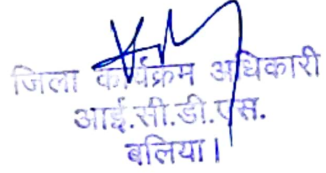 जिला कार्यक्रम अधिकारी
आई.सी.डी.एस.
बलिया।